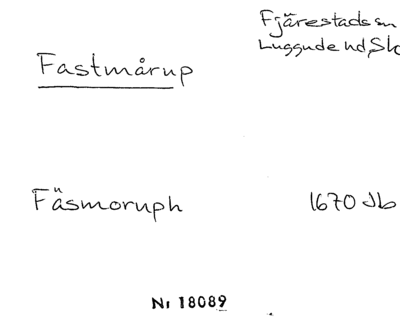 Fjärestads sn
Luggude hd, Sk
Fastmårup
Fäsmoruph 1670 Jb
Nr 18089